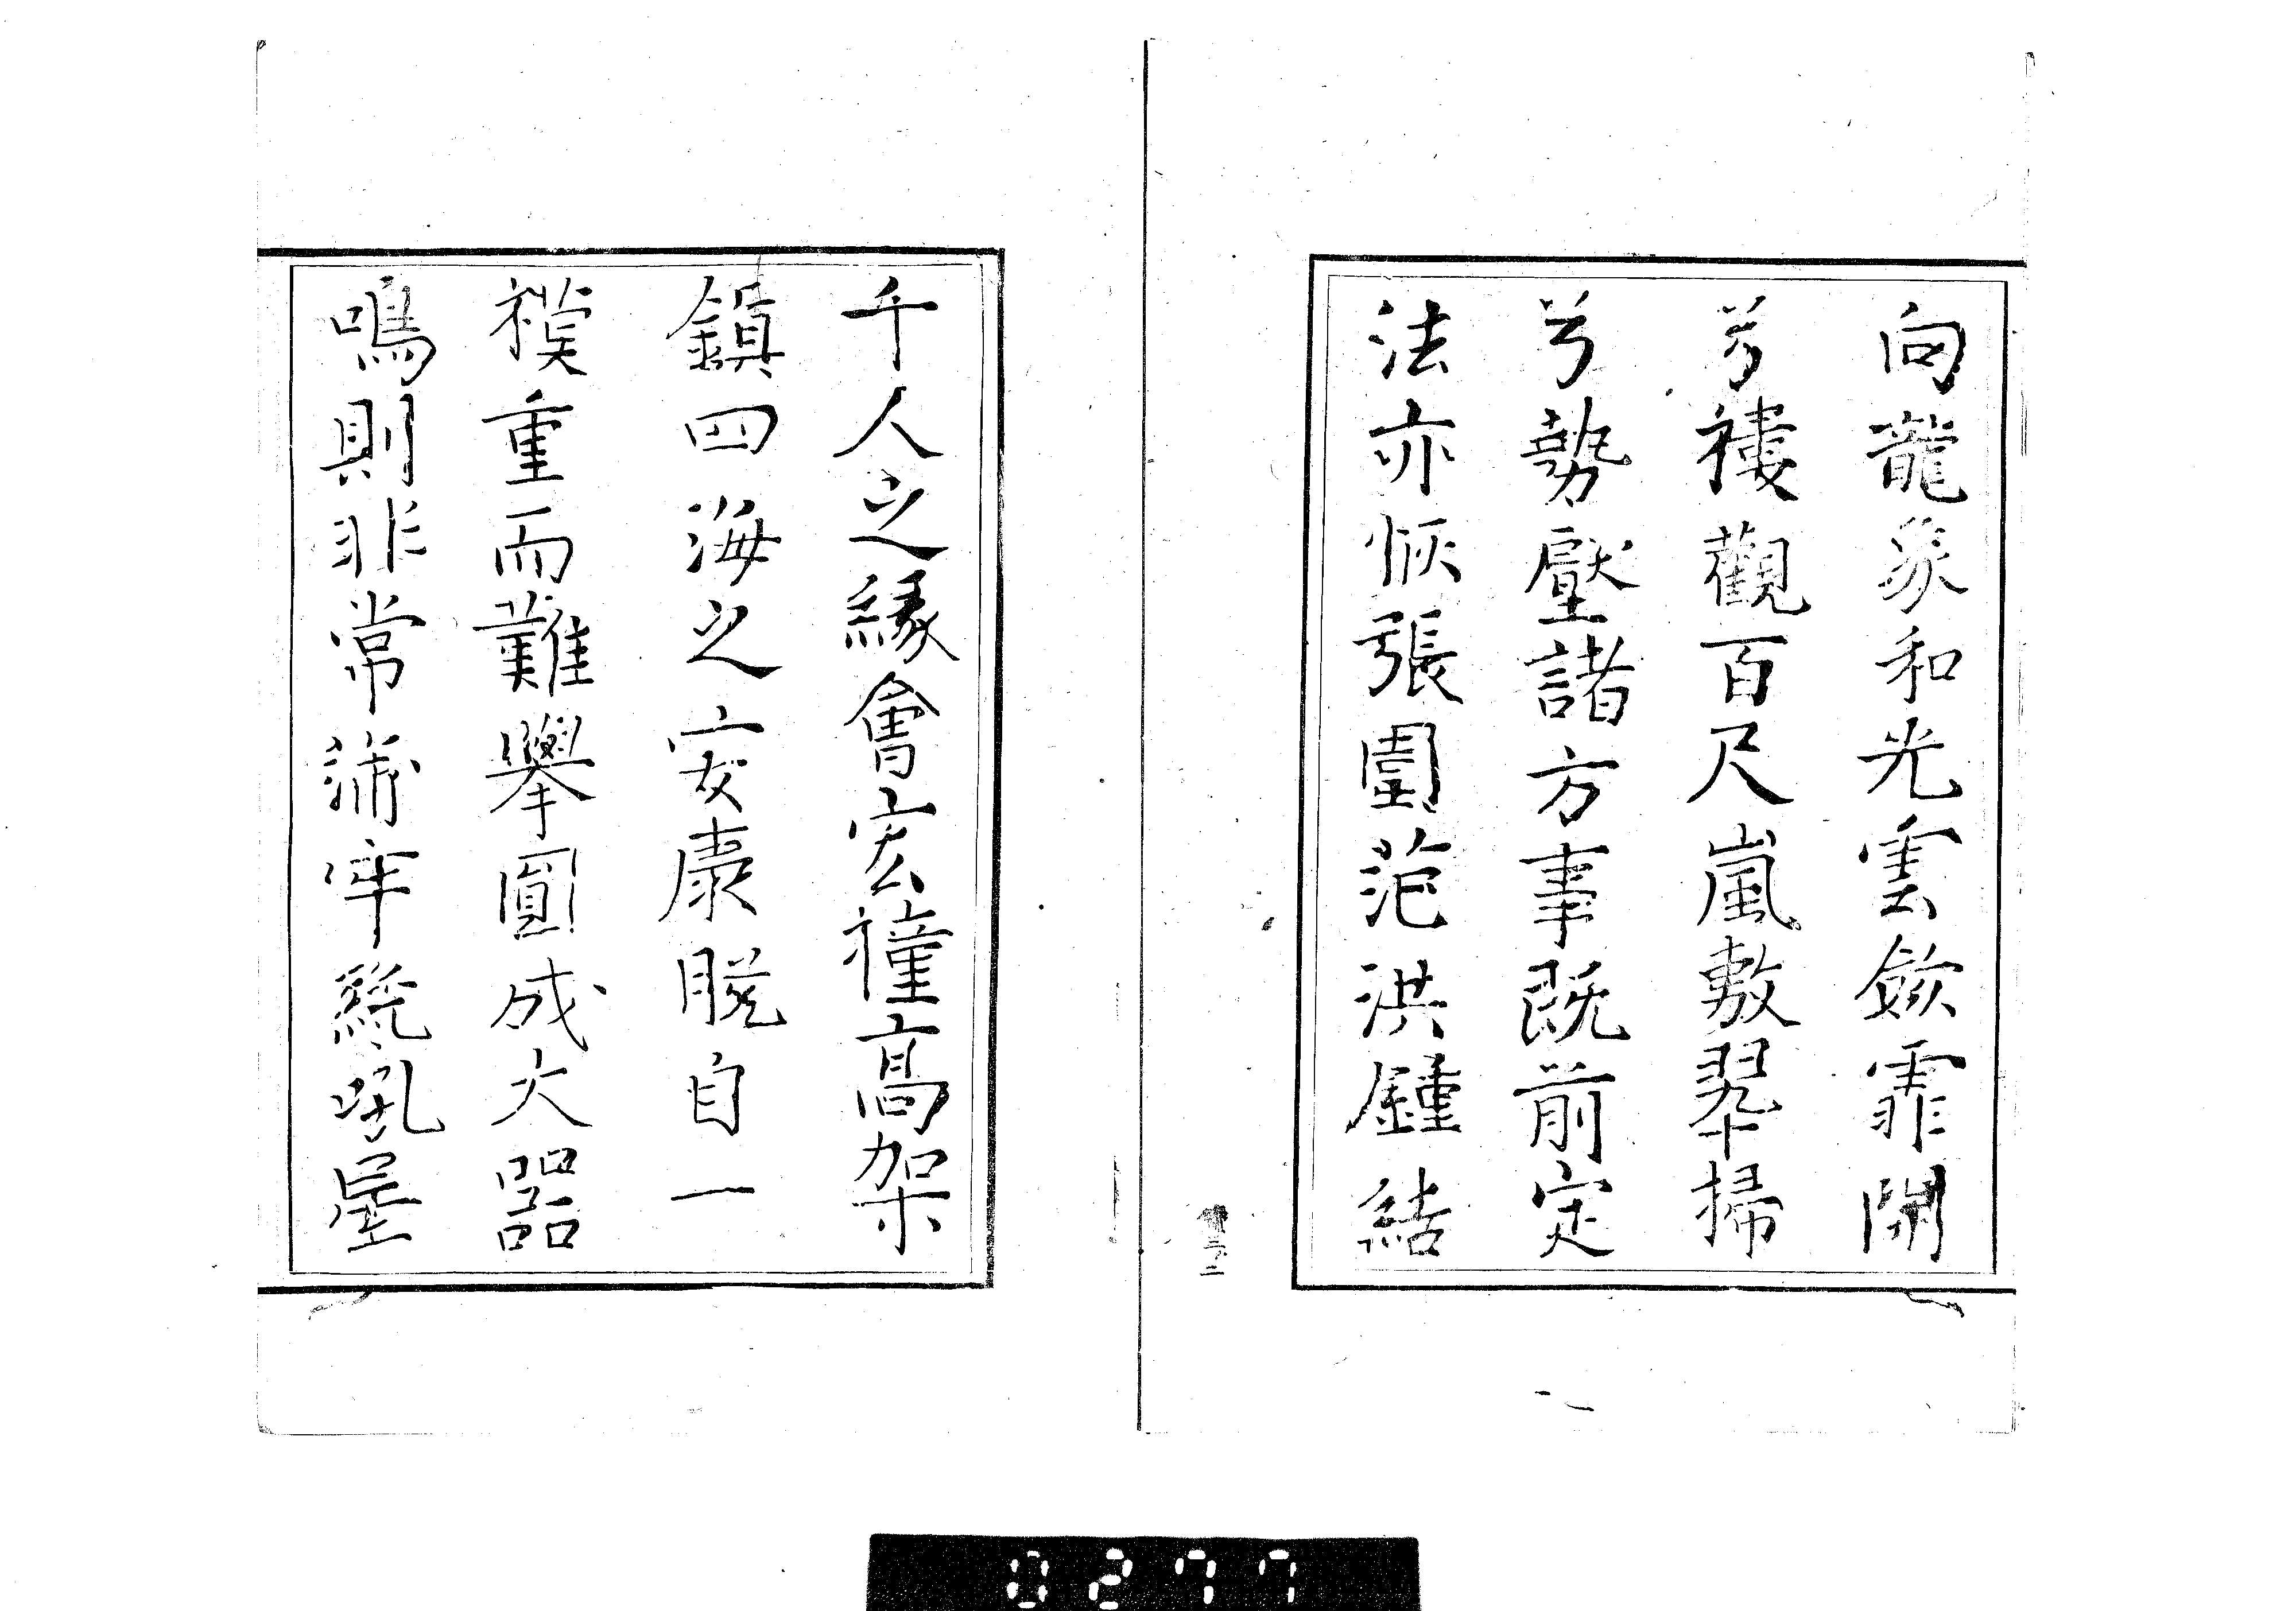 向龍象和光雲斂霏開
兮樓觀百尺嵐敷翠掃
兮勢壓諸方事既前定
法亦恢張圍范洪鍾結
千人之緣會宏橦高架
鎮四海之安康脱自一
模重而難舉圓成大器
鳴則非常蒲牢繞吼星
0277